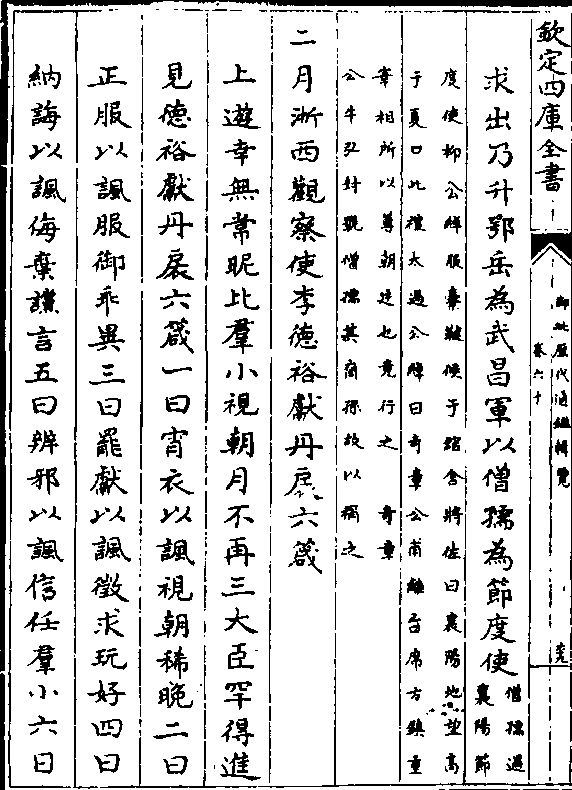 欽定四庫全書
御批歷代通鑑輯覽
卷六十
求出乃升鄂岳為武昌軍以僧孺為節度使
僧孺過
襄陽節
度使柳公綽服櫜鞬候于館舍將佐曰襄陽地望高
于夏口此禮太過公綽曰奇章公甫離台席方鎮重
宰相所以尊朝廷也竟行之 奇章
公牛弘封號僧孺其裔孫故以稱之
二月浙西觀察使李德裕獻丹扆六箴
上遊幸無常昵比羣小視朝月不再三大臣罕得進
見德裕獻丹扆六箴一曰宵衣以諷視朝稀晚二曰
正服以諷服御乖異三曰罷獻以諷徵求玩好四曰
納誨以諷侮棄讜言五曰辨邪以諷信任羣小六曰